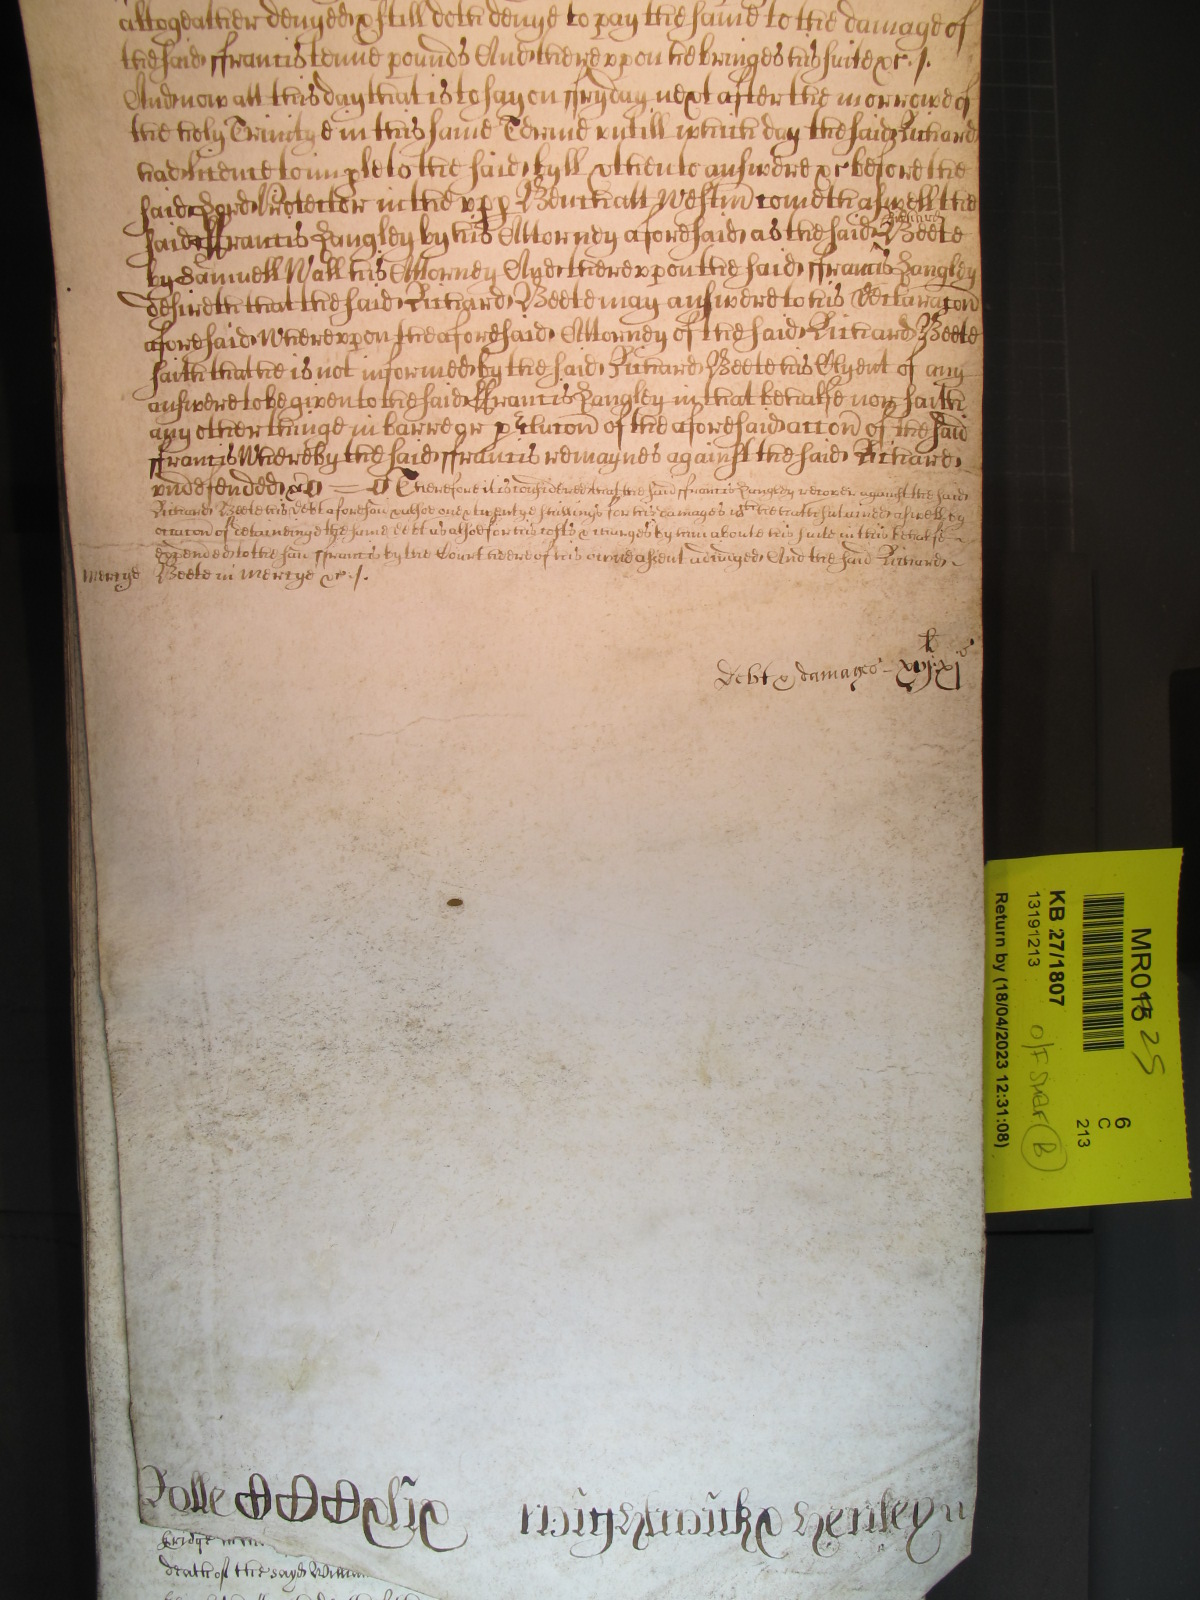 altogeather denyed & still doth denye to pay the same to the damage of
the said ffrancis tenne pounds And thereuppon he bringes his suite &c ./.
And now att this day that is to say on ffryday next after the morrowe of
the holy Trinitye in this same Terme untill which day the said Richard
had licence to imple to the said byll & then to answere &c before the
said Lord Protector in the upp Bench att Westm cometh aswell the
said ffrancis Langley by his Attorney aforesaid as the said Richard Beete
by Samuell Wall his Attorney And thereuppon the said ffrancis Langley
desireth that the said Richard Beete may answere to his Declaracon
aforesaid Whereuppon the aforesaid Attorney of the said Richard Beete
saith that he is not informed by the said Richard Beete his Clyent of any
answere to be given to the said ffrancis Langley in that behalfe nor saith
any other thinge in barre or p clucon of the aforesaid accon of the said
ffrancis Whereby the said ffrancis remaynes against the said Richard
undefended &c Therefore it is considered that the said ffrancis Langley recover against the said
Richard Beete his debt aforesaid & alsoe one & twentye shillings for his damages which he hath susteined aswell by
occacon of deteininge the same debt as alsoe for his costs & charges by him aboute his suite in this behalfe
expended to the said ffrancis by the Court here of his owne assent adiudged And the said Richard
mercye Beete in mercye &c ./.
debt & damages - xvij xj s
Rolle CCCxlix
Henley
bridge
death of the sayd William
MR018 25
6
C
213
KB 27/1807
13191213
O/F Shelf B
Return by (18/04/2023 12:31:08)